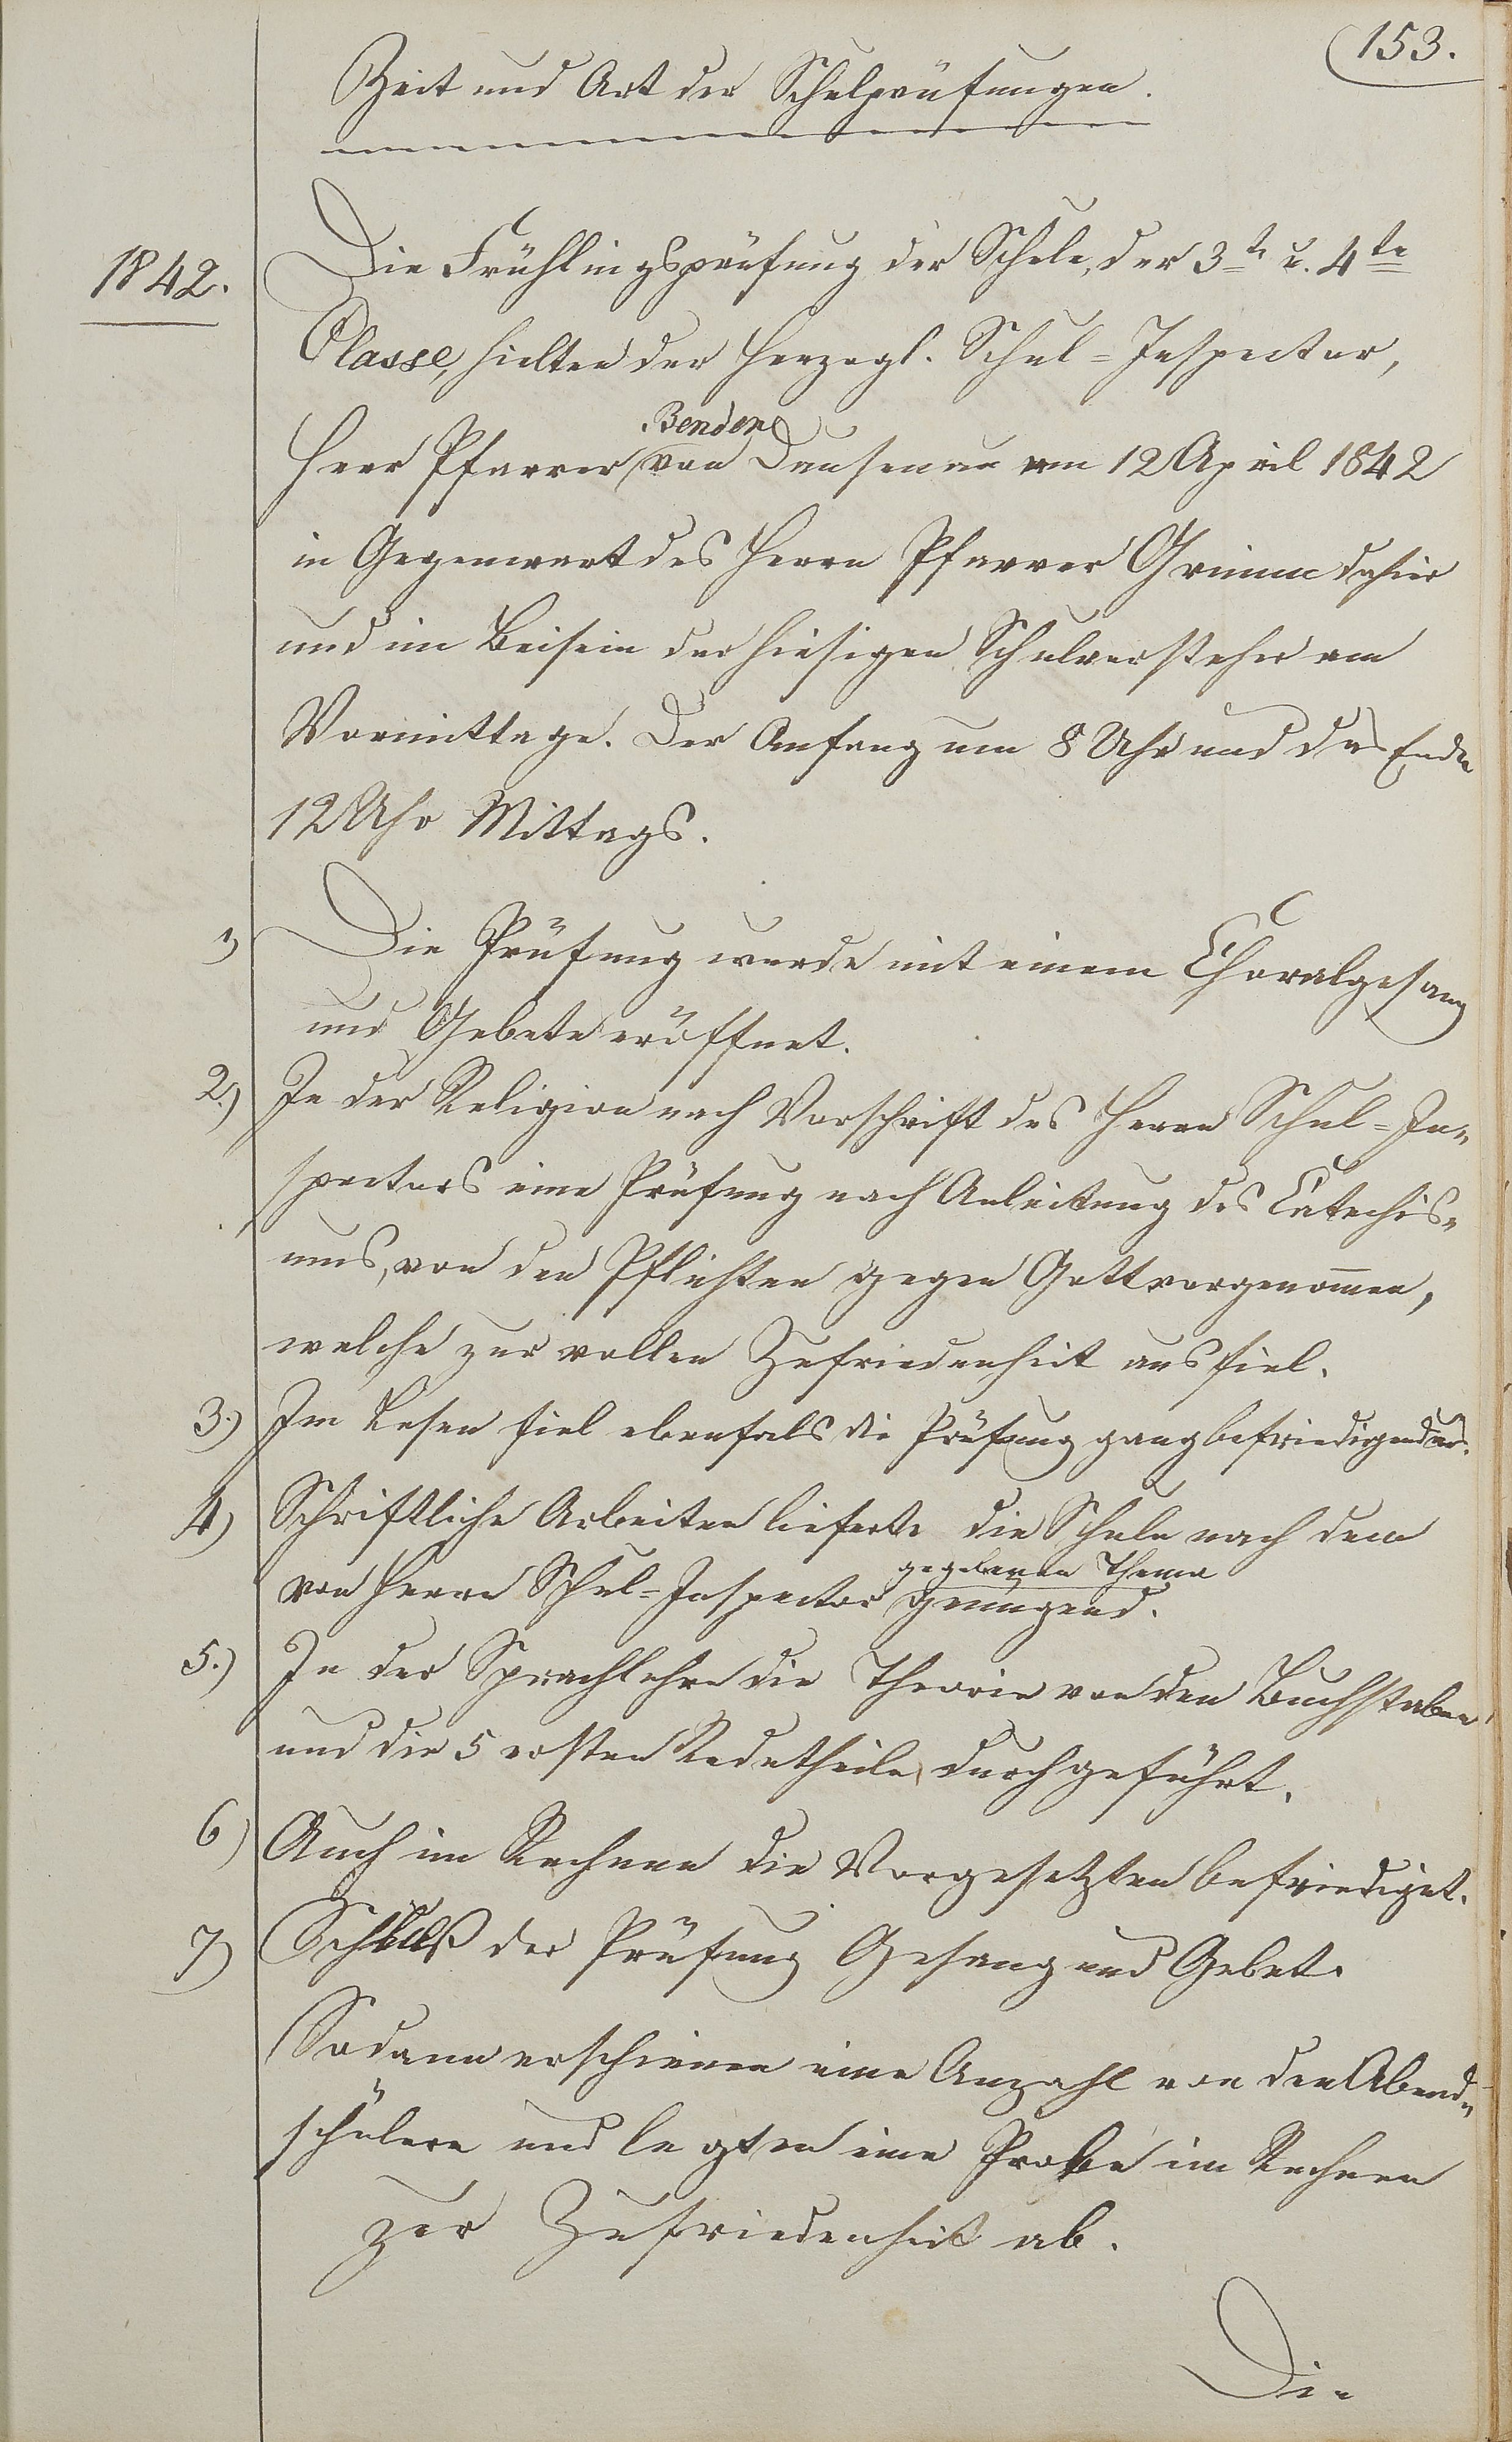 153.
Zeit und Art der Schulprüfungen.
1842.
Die Frühlingsprüfung der Schule, der 3te u. 4te
Classe, hielten der Herzogl. Schul-Inspector,
Bender
Herr Pfarrer von Dausenau am 12 April 1842
in Gegenwart des Herrn Pfarrer Grimm dahier
und im Beisein der hiesigen Schulvorsteher am
Vormittage. Der Anfang um 8 Uhr und das Ende
12 Uhr Mittags.
1) Die Prüfung wurde mit einem Choralgesang
und Gebete eröffnet.
2.) In der Religion nach Vorschrift des Herrn Schul-In-
spectors eine Prüfung nach Anleitung des Catechis-
mus, von den Pflichten gegen Gott vorgenommen,
welche zur vollen Zufriedenheit ausfiel.
3.) Im Lesen fiel ebenfals die Prüfung ganz befriedigend aus.
4) Schriftliche Arbeiten lieferte die Schule nach dem
gegebenen Thema
von Herrn Schul-Inspector genügend.
5.) In der Sprachlehre die Theorie von den Buchstaben
und die 5 ersten Redetheile durchgeführt.
6) Auch im Rechnen die Vorgesetzten befriediget.
7) Schluß der Prüfung Gesang und Gebet.
Sodann erschienen eine Anzahl von den Abend-
schülern und legten eine Probe im Rechnen
zur Zufriedenheit ab.
Die